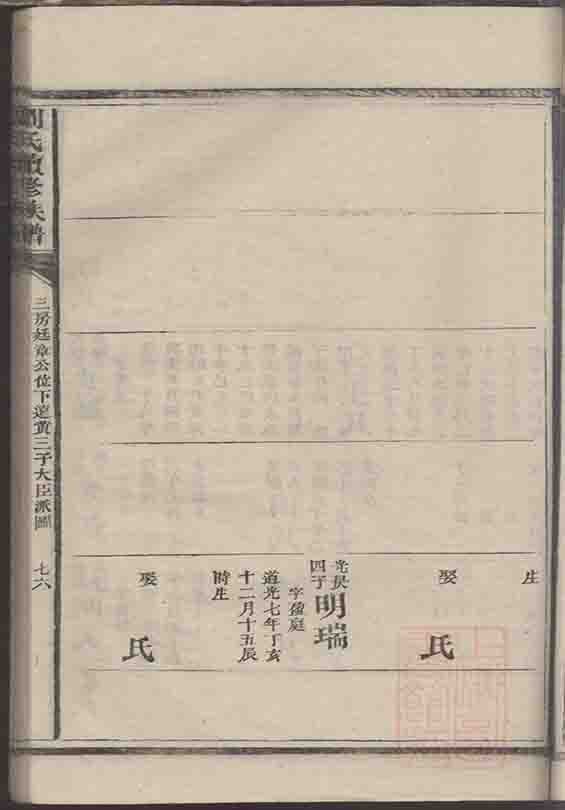 生
娶 氏
四子 明瑞
字盈庭
道光七年丁亥
十二月十五辰
時生
娶 氏
劉氏續修族譜
三房廷章公位下達賁三子大臣派圖
七六